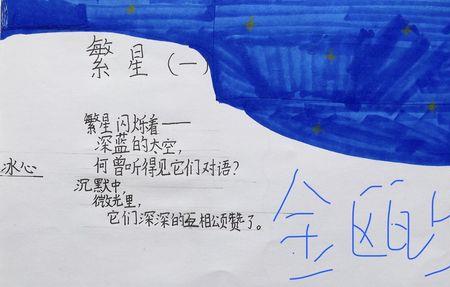 繁星（一）
繁星闪烁着——
深蓝的太空，
何曾听得见它们对语？
冰心
沉默中，
微光里，
它们深深的互相颂赞了。